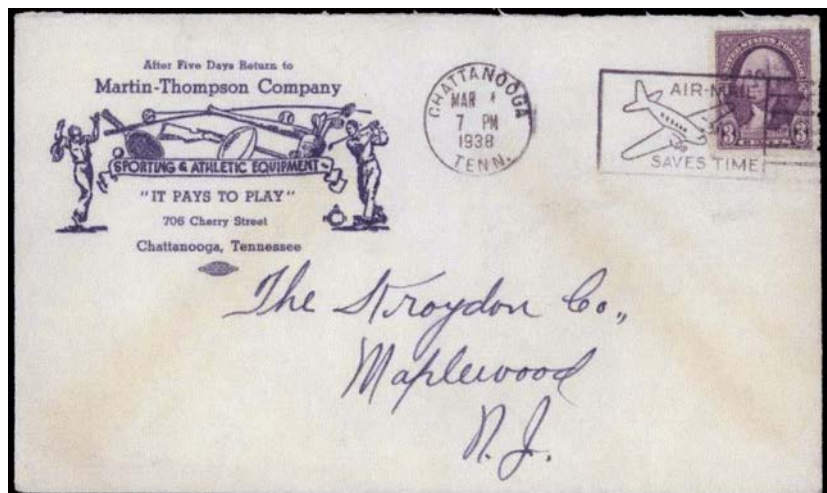 After Five Days Return to
Martin-Thompson Company
SPORTING & ATHLETIC EQUIPMENT
"IT PAYS TO PLAY"
706 Cherry Street
Chattanooga, Tennessee
CHATTANOOGA
MAR
7 PM
1938
TENN.
AIR-MAIL
SAVES TIME
UNITED STATES POSTAGE
3 3
CENTS
The Stroydon Co.,
Maplewood
N.J.